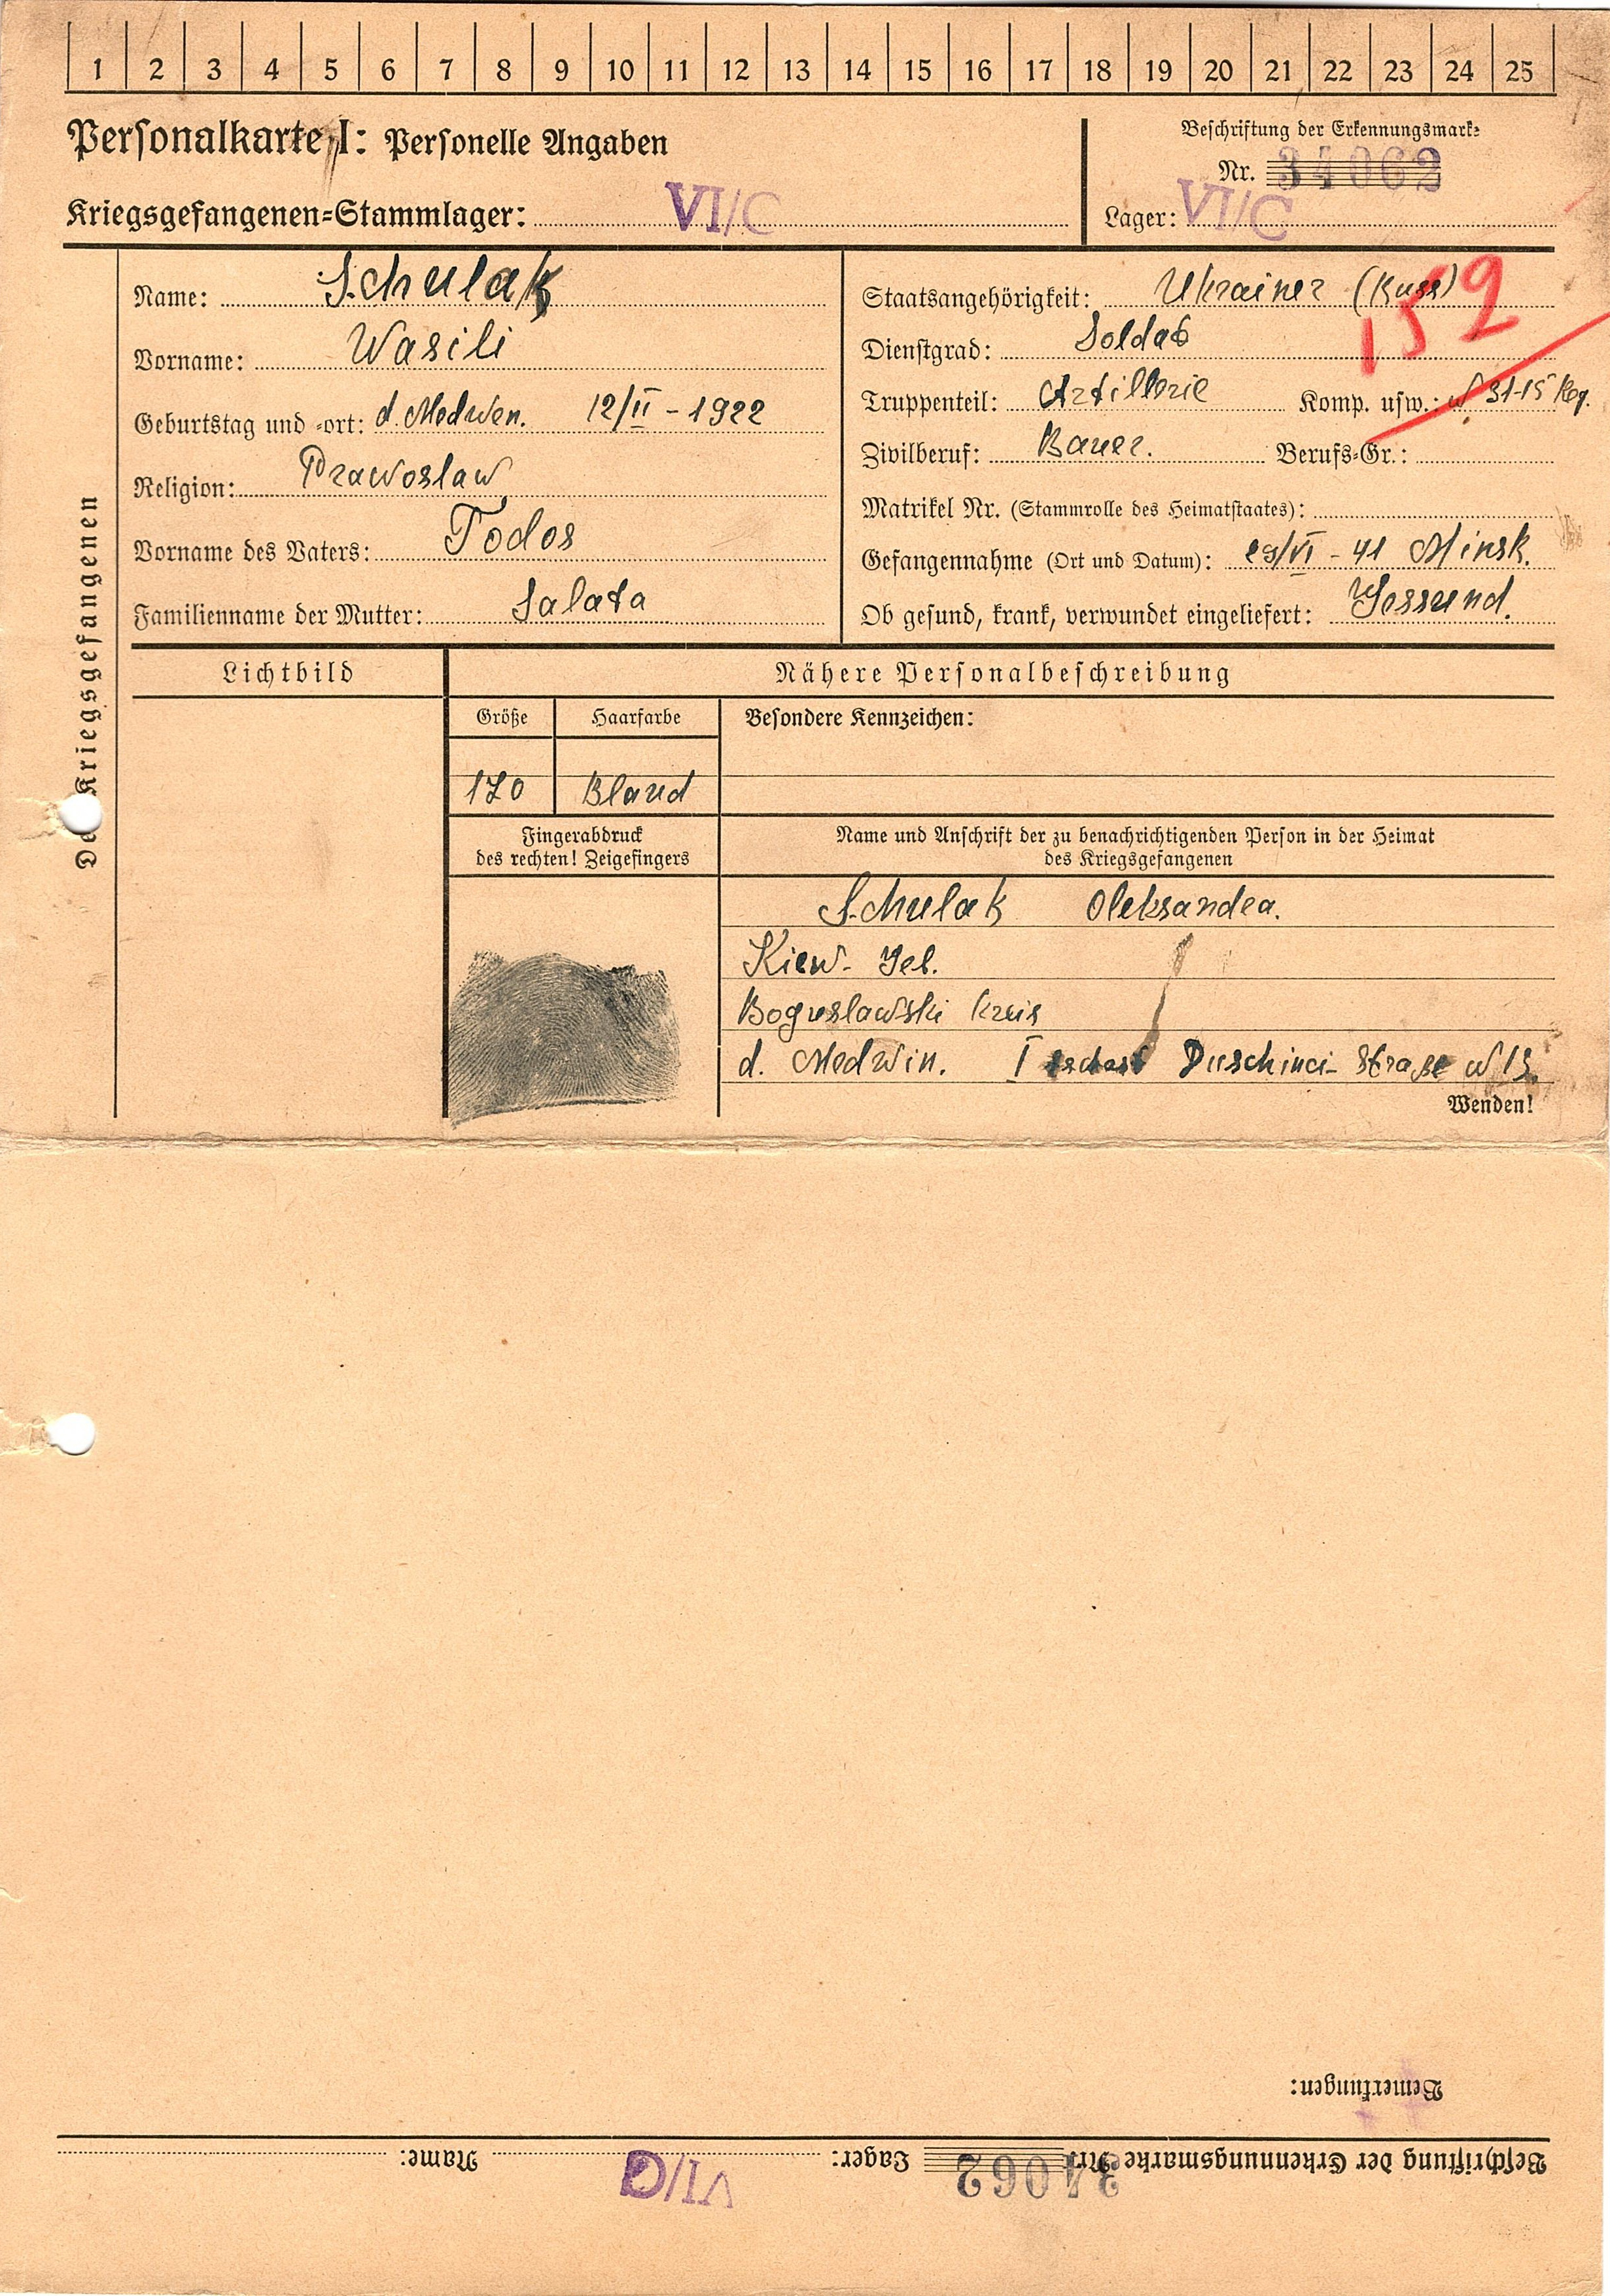 1 2 3 4 5 6 7 8 9 10 11 12 13 14 15 16 17 18 19 20 21 22 23 24 25
Personalkarte I: Personelle Angaben
Kriegsgefangenen-Stammlager: VI/C
Beschriftung der Erkennungsmarke
Nr. 34062
Lager: VI/C
Des Kriegsgefangenen
Name: Schulak
Vorname: Wasili
Geburtstag und -ort: d. Medwen. 12/II - 1922
Religion: Prawoslaw
Vorname des Vaters: Todos
Familienname der Mutter: Salata
Staatsangehörigkeit: Ukrainer (Russ)
159
Dienstgrad: Soldat
Truppenteil: Artillerie Komp. usw.: N 31-15 Reg.
Zivilberuf: Bauer. Berufs-Gr.:
Matrikel Nr. (Stammrolle des Heimatstaates):
Gefangennahme (Ort und Datum): 29/VI - 41 Minsk.
Ob gesund, krank, verwundet eingeliefert: Gessund.
Lichtbild
Nähere Personalbeschreibung
Größe
Haarfarbe
Besondere Kennzeichen:
170
Bland
Fingerabdruck
des rechten! Zeigefingers
Name und Anschrift der zu benachrichtigenden Person in der Heimat
des Kriegsgefangenen
Schulak Oleksandra.
Kiew- Geb.
Boguslawski Kreis
d. Medwin. I Duschinci- Straße N 13.
Wenden!
Bemerkungen:
Beschriftung der Erkennungsmarke Nr. 34062 Lager: VI/C Name: